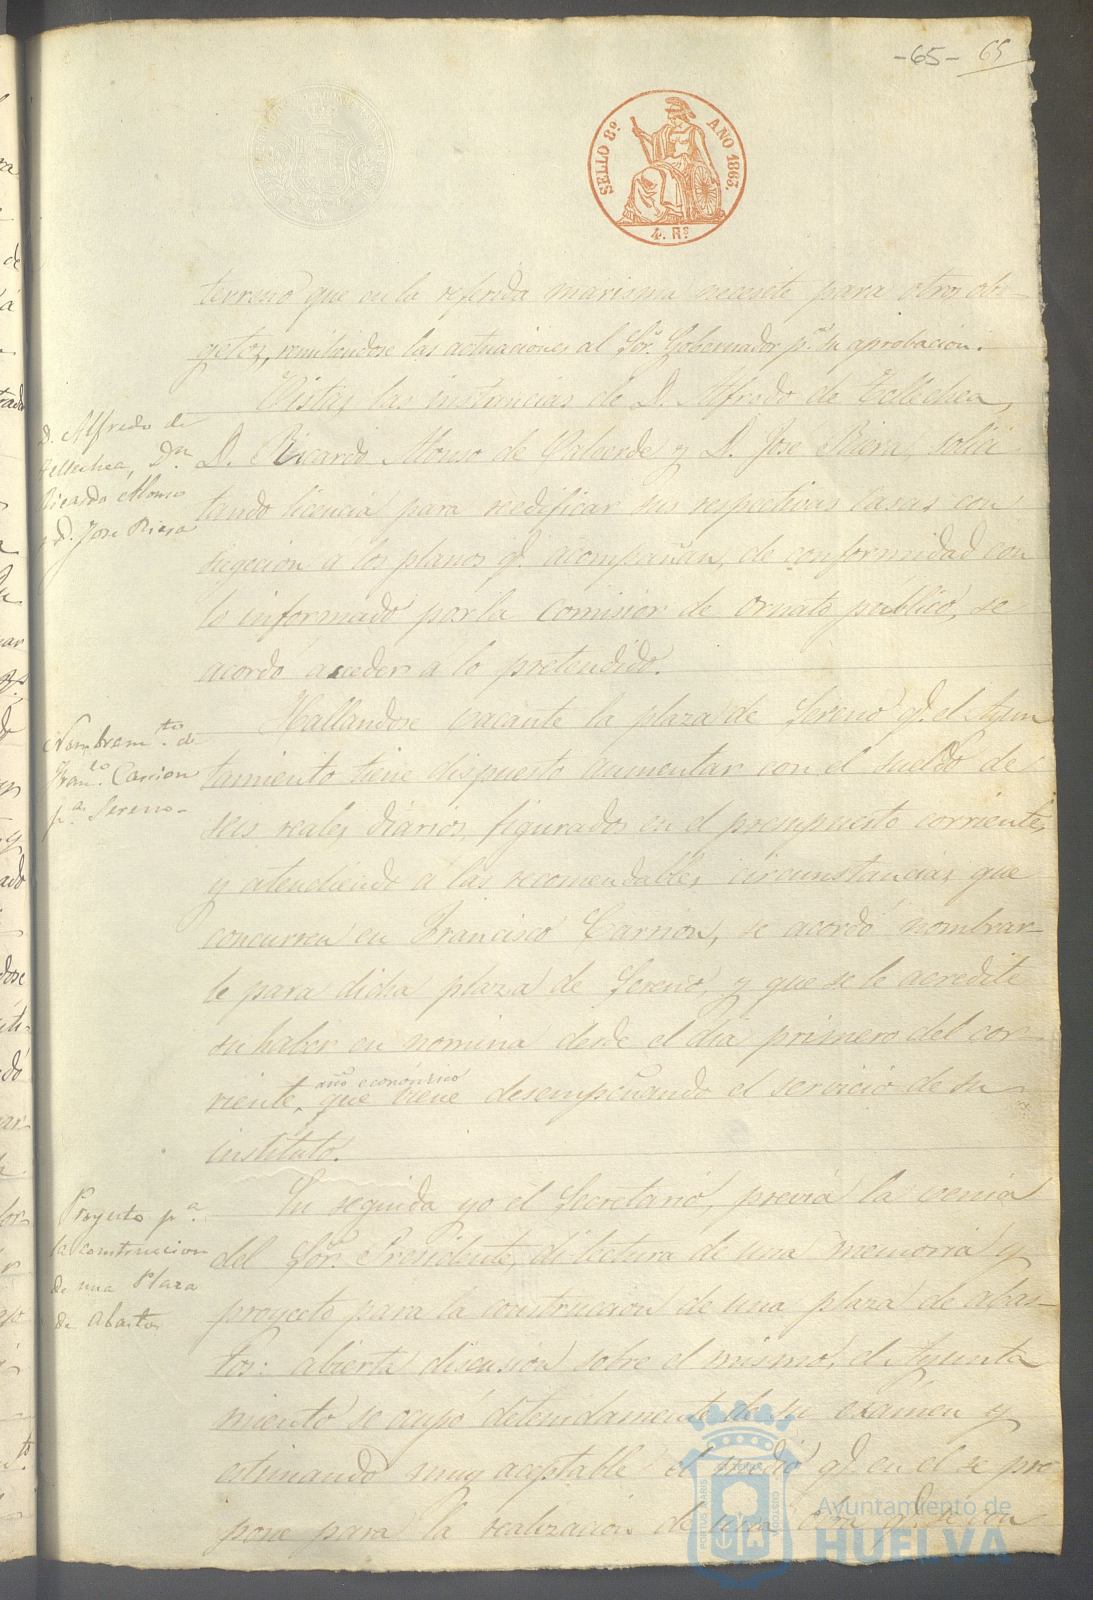 -65- 65
SELLO 8º AÑO 1865.
4. Rs
terreno que en la referida marisma necesite para otros ob-
getos, remitiendose las actuaciones al Sor. Gobernador pª su aprobacion.
D. Alfredo de
Tellechea, Dn
Ricardo Alonso
y D. Jose Riera
Vistas las instancias de D. Alfredo de Tellechea,
D. Ricardo Alonso de Valverde y D. Jose Riera, solici
tando licencia para redificar sus respectivas casas con
sugecion a los planos q. acompañan, de conformidad con
lo informado por la comision de ornato publico, se
acordó acceder a lo pretendido.
Nombramto de
Franco Carrion
pa Sereno-
Hallandose vacante la plaza de Sereno q. el Ayun
tamiento tiene dispuesto aumentar con el sueldo de
seis reales diarios, figurados en el presupuesto corriente,
y atendiendo a las recomendables circunstancias que
concurren en Francisco Carrion, se acordó nombrar-
le para dicha plaza de Sereno, y que se le acredite
su haber en nomina desde el dia primero del cor-
año económico
riente, que viene desempeñando el servicio de su
instituto.
Proyecto pa
la construccion
de una Plaza
de Abastos
En seguida yo el Secretario, previa la venia
del Sor. Presidente, di lectura de una memoria y
proyecto para la construccion de una plaza de abas-
tos: abierta discusion sobre el mismo, el Ayunta
miento se ocupó detenidamente de su exámen y
estimando muy aceptable el medio q. en el se pro
pone para la realizacion de una obra q.
PORTUS MARIS ET TERRAE CUSTODIA
Ayuntamiento de
HUELVA